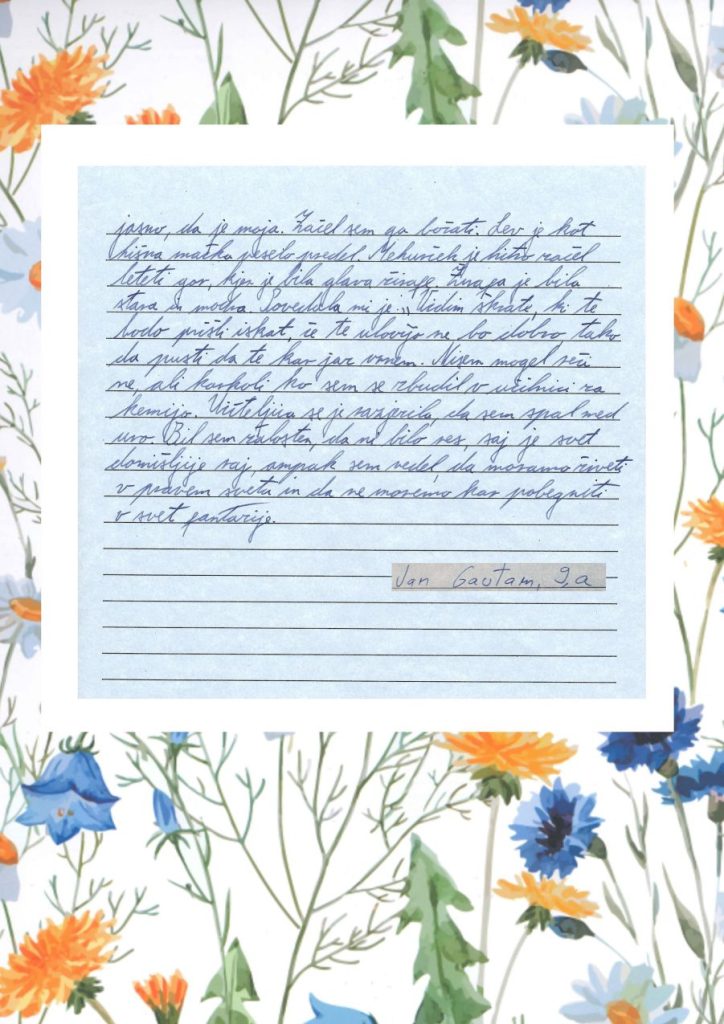 jasno, da je moja. Začel sem ga božati. Lev je kot
hišna mačka veselo predel. Mehurček je hitro začel
leteti gor, kjer je bila glava žirafe. Žirafa je bila
stara in modra. Povedala mi je: „Vidim škrate, ki te
bodo prišli iskat, če te ulovijo ne bo dobro, tako
da pusti da te kar jaz vrnem. Nisem mogel reči
ne, ali karkoli ko sem se zbudil v učilnici za
kemijo. Učiteljica se je razjezila, da sem spal med
uro. Bil sem žalosten, da ni bilo res, saj je svet
domišljije raj, ampak sem vedel, da moramo živeti
v pravem svetu in da ne moremo kar pobegniti
v svet fantazije.
Jan Gautam, 9.a